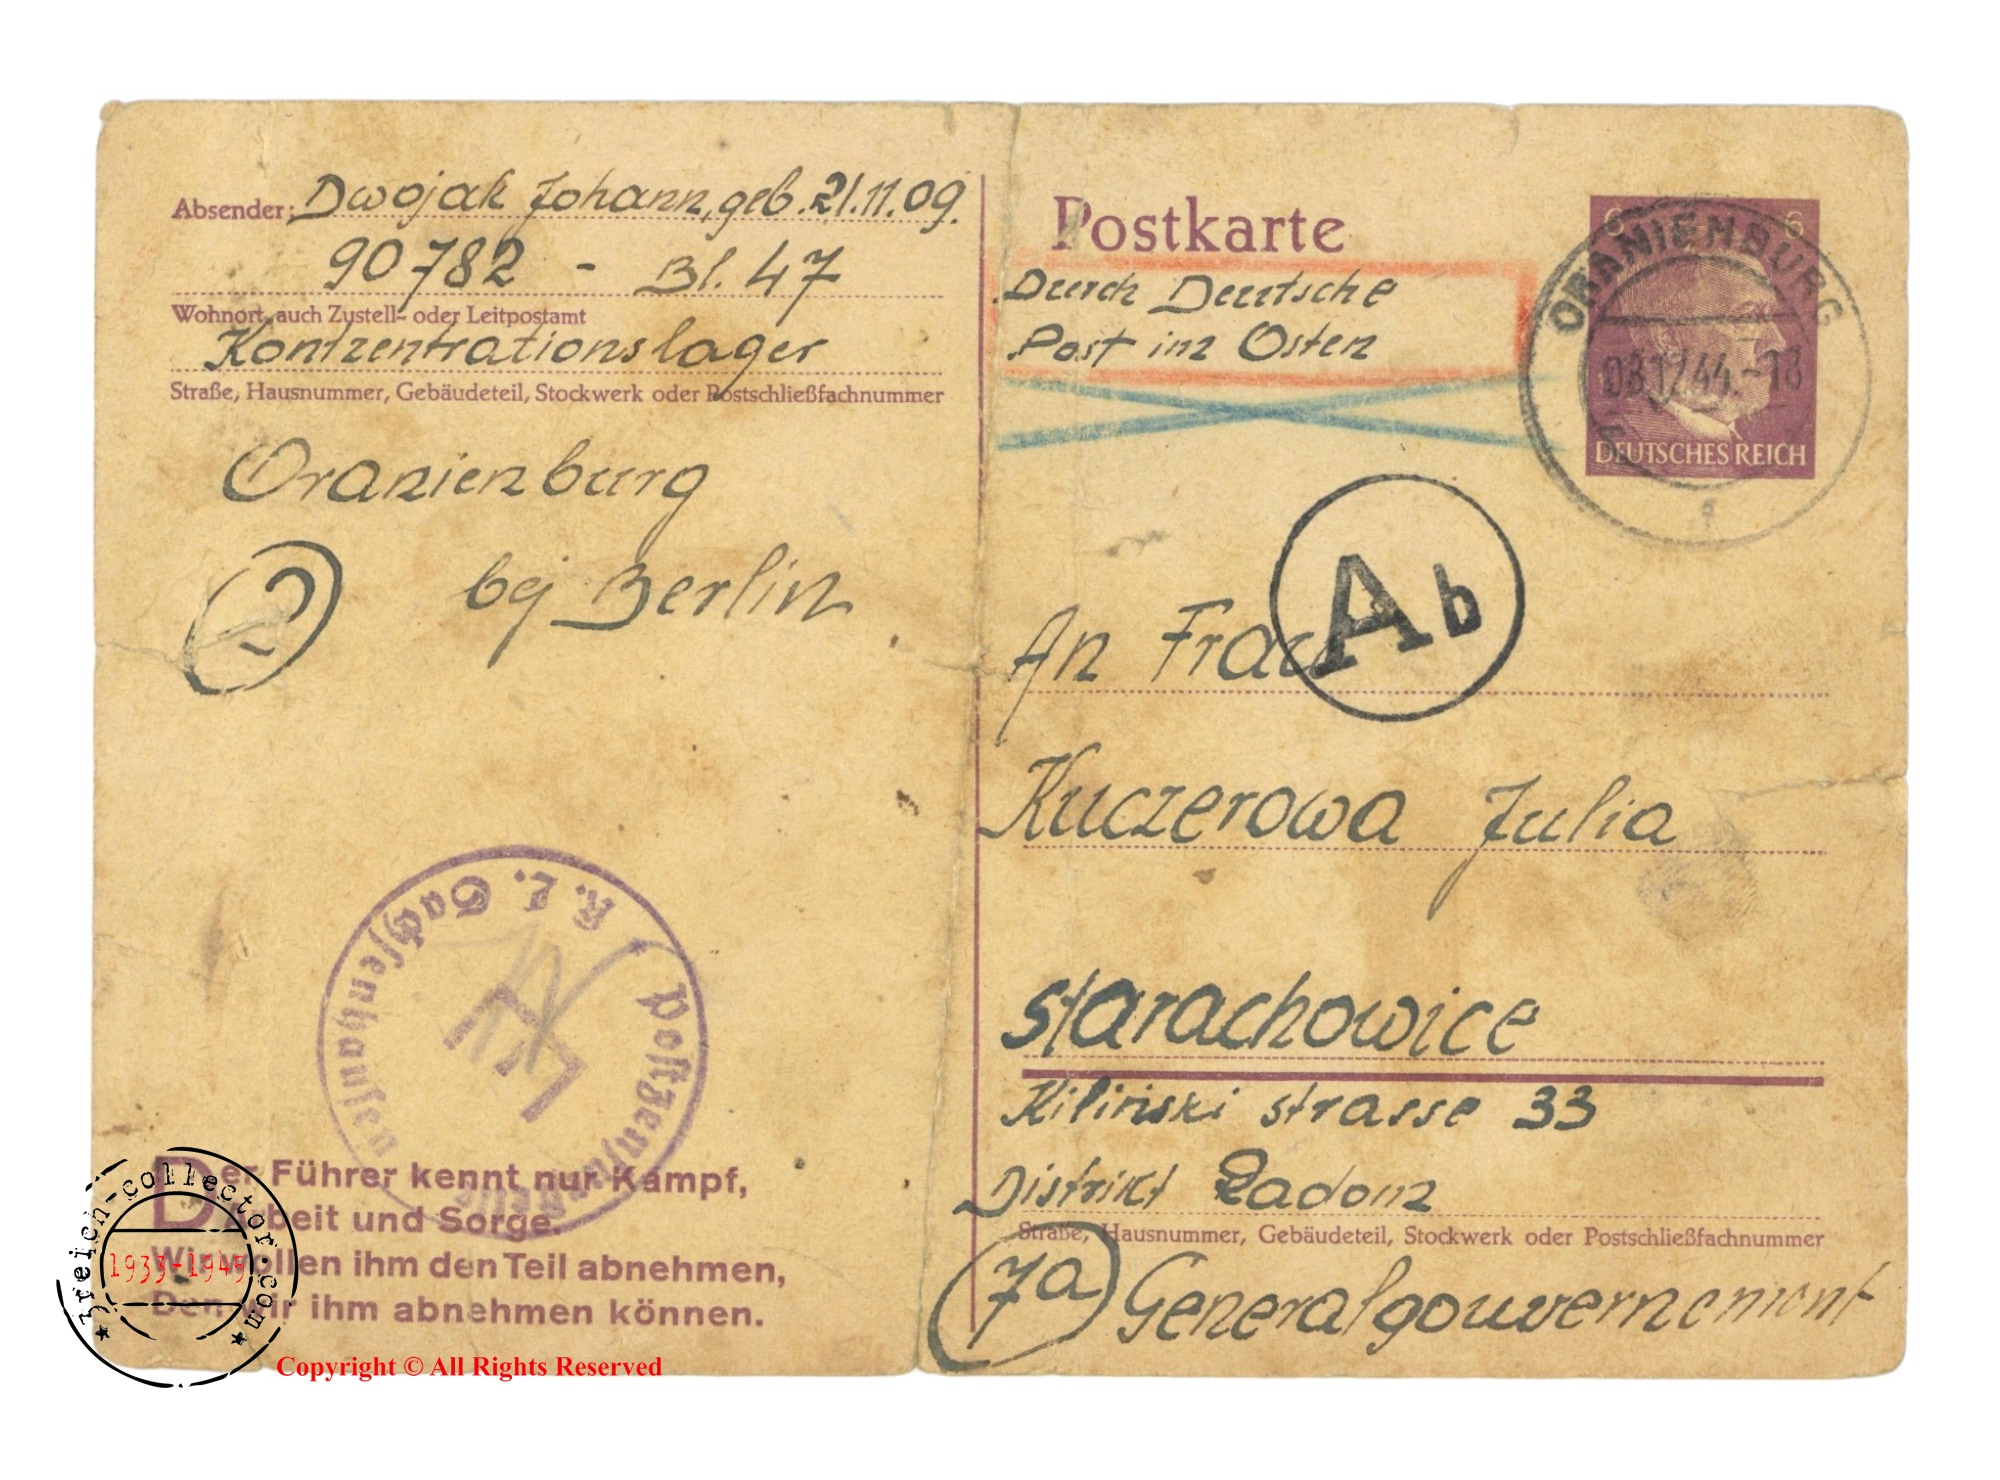 Absender: Dwojak Johann, geb. 21.11.09.
90782 - Bl. 47
Wohnort, auch Zustell- oder Leitpostamt
Kontzentrationslager
Straße, Hausnummer, Gebäudeteil, Stockwerk oder Postschließfachnummer
Oranienburg
bej Berlin
K. L. Sachsenhausen
Postzensur
Der Führer kennt nur Kampf,
Arbeit und Sorge.
Wir wollen ihm den Teil abnehmen,
Den wir ihm abnehmen können.
Postkarte
Durch Deutsche
Post im Osten
6 6
DEUTSCHES REICH
ORANIENBURG
12.44.-18
Ab
An Frau
Kuczerowa Julia
Starachowice
Kilinski strasse 33
Distrikt Radom
Straße, Hausnummer, Gebäudeteil, Stockwerk oder Postschließfachnummer
7a Generalgouvernement
3reich-collector.com
1933-1945
Copyright © All Rights Reserved